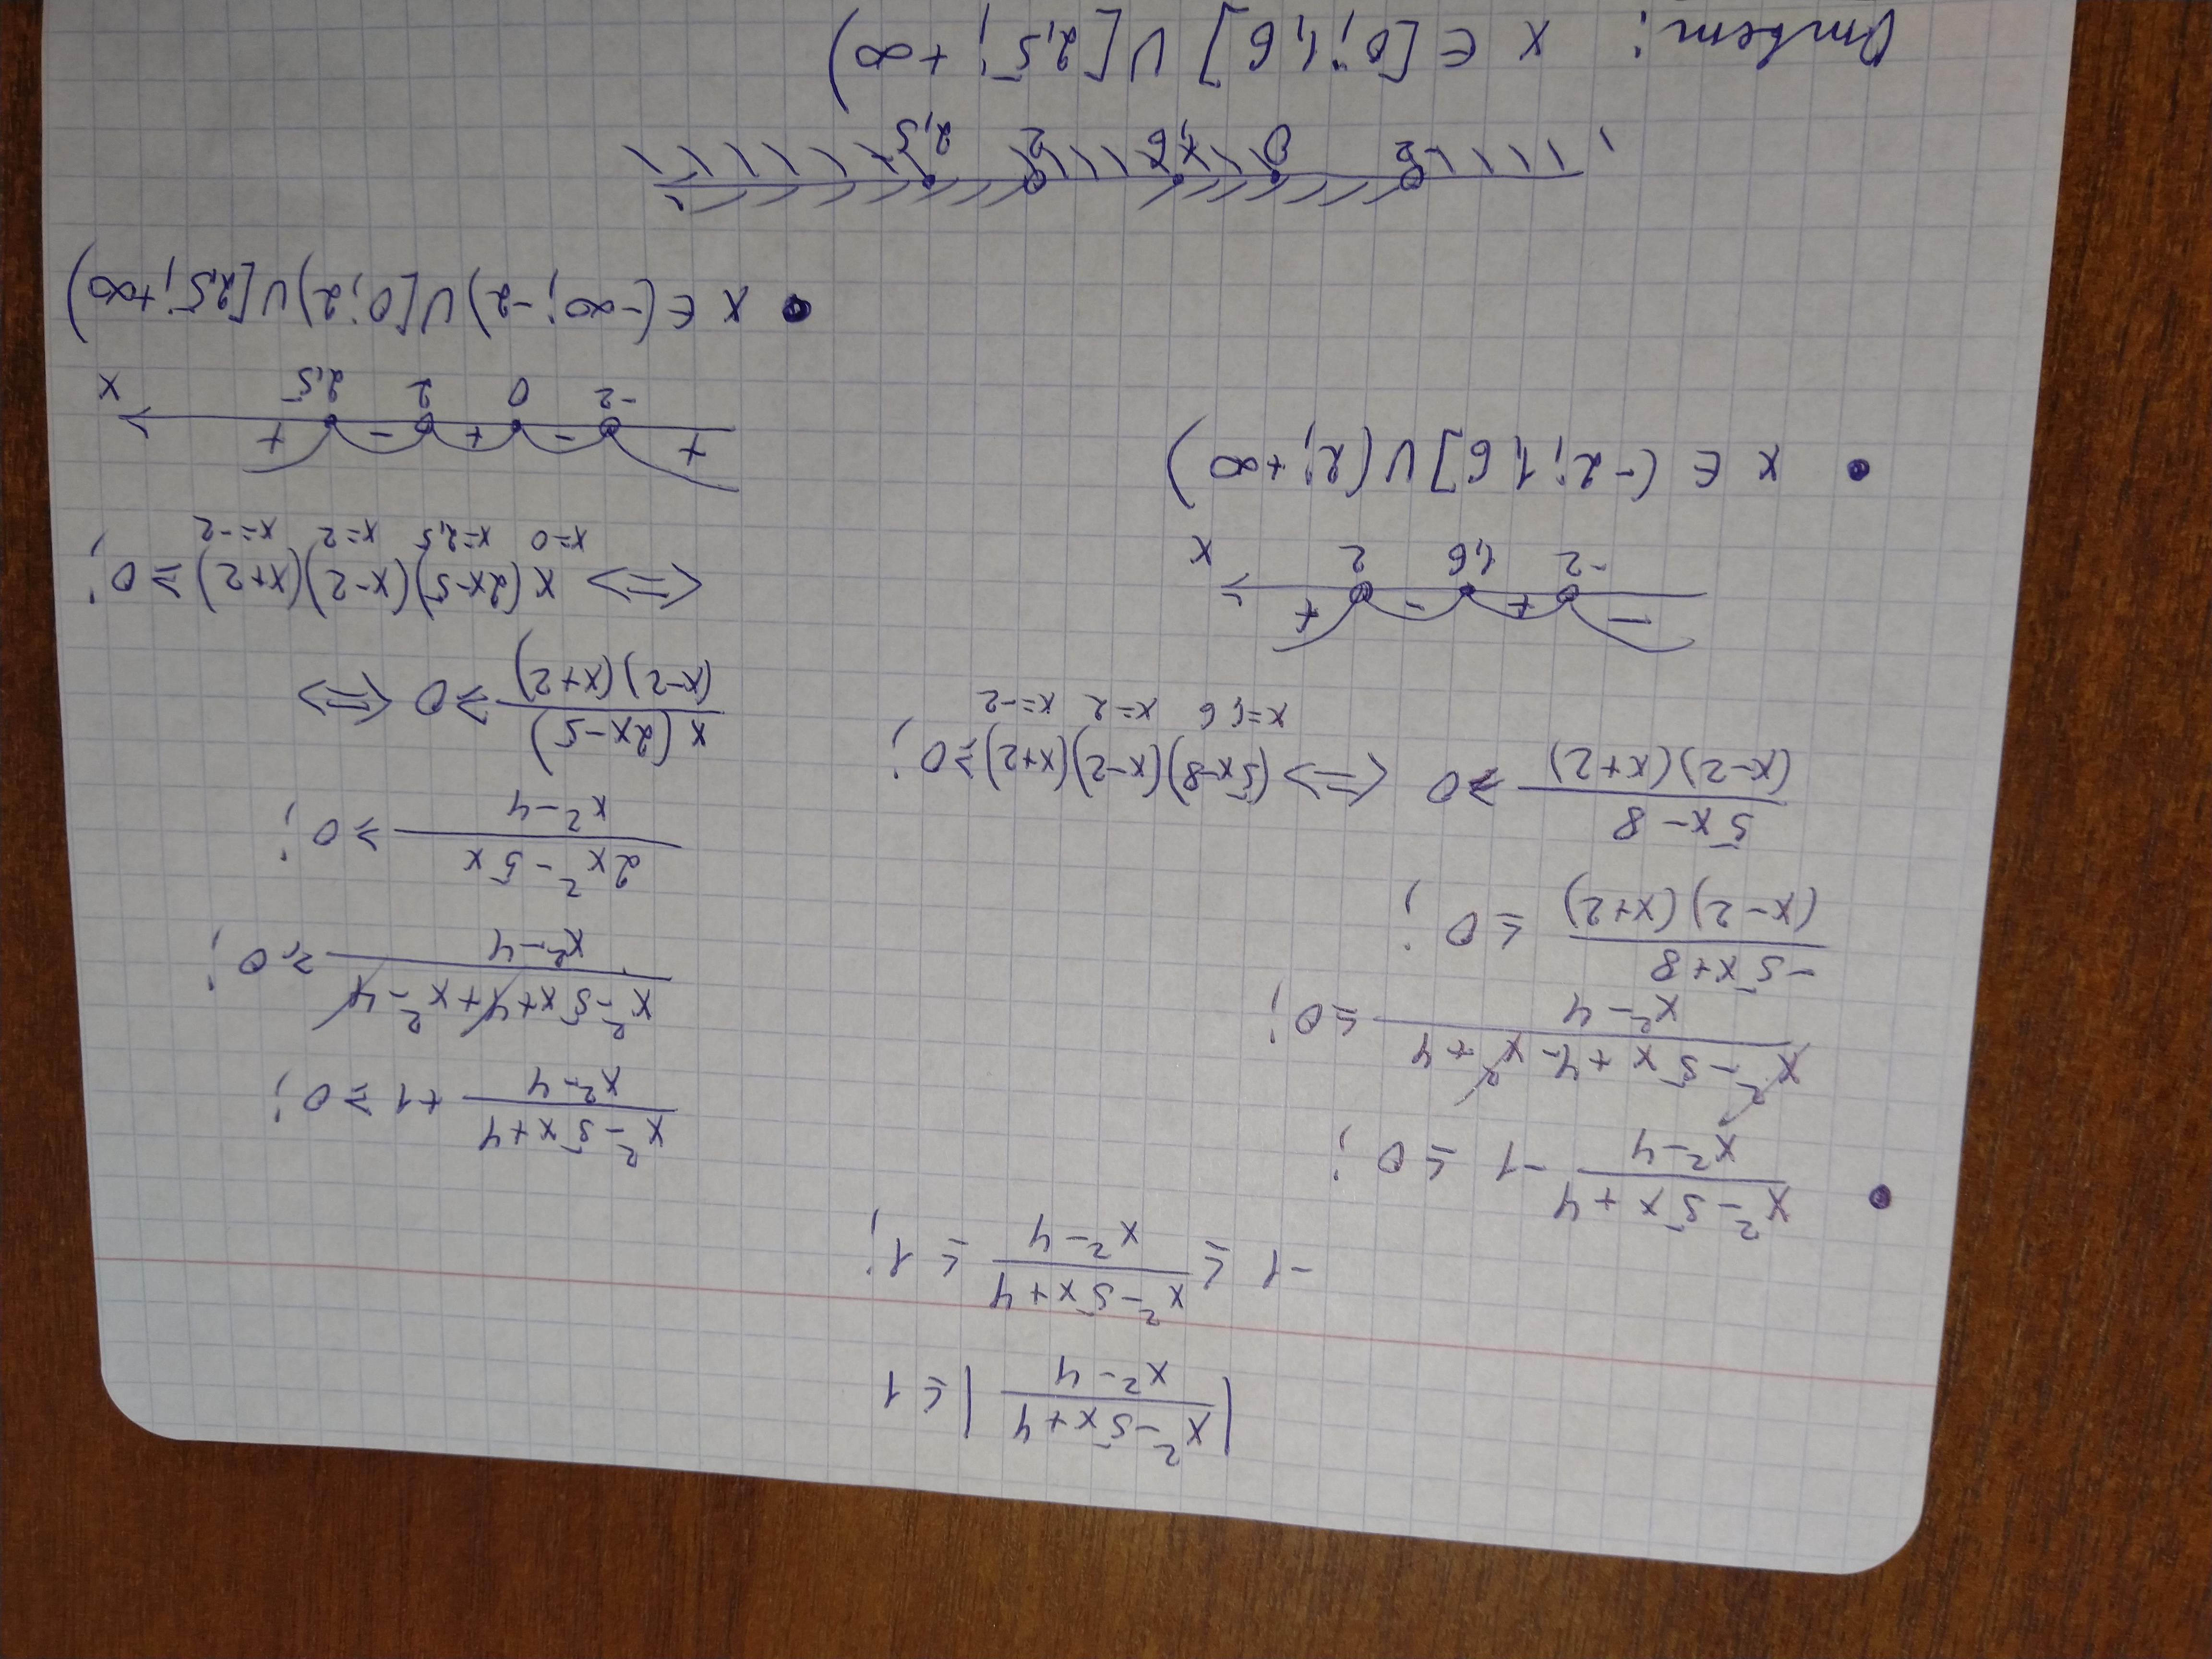 |(x²-5x+4)/(x²-4)| ≤ 1
-1 ≤ (x²-5x+4)/(x²-4) ≤ 1;
• (x²-5x+4)/(x²-4) -1 ≤ 0;
(x²-5x+4-x²+4)/(x²-4) ≤ 0;
(-5x+8)/((x-2)(x+2)) ≤ 0;
(5x-8)/((x-2)(x+2)) ≥ 0 <=> (5x-8)(x-2)(x+2) ≥ 0;
x=1,6 x=2 x=-2
- + - +
-2 1,6 2 x
• x ∈ (-2; 1,6] ∪ (2; +∞)
(x²-5x+4)/(x²-4) +1 ≥ 0;
(x²-5x+4+x²-4)/(x²-4) ≥ 0;
(2x²-5x)/(x²-4) ≥ 0;
(x(2x-5))/((x-2)(x+2)) ≥ 0 <=>
<=> x(2x-5)(x-2)(x+2) ≥ 0;
x=0 x=2,5 x=2 x=-2
+ - + - +
-2 0 2 2,5 x
• x ∈ (-∞; -2) ∪ [0; 2) ∪ [2,5; +∞)
-2 0 1,6 2 2,5
Ответ: x ∈ [0; 1,6] ∪ [2,5; +∞)